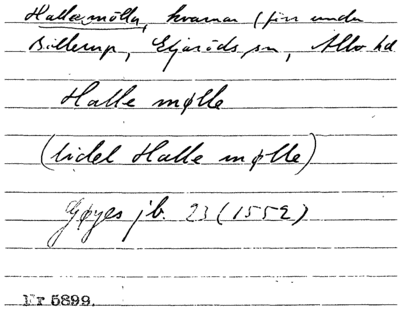 Hallamölla, kvarnar (förr under
Bollerup, Eljaröds sn, Albo hd
Halle mølle
(lidel Halle mølle)
Gøyes jb. 23 (1552)
Fr 5899.